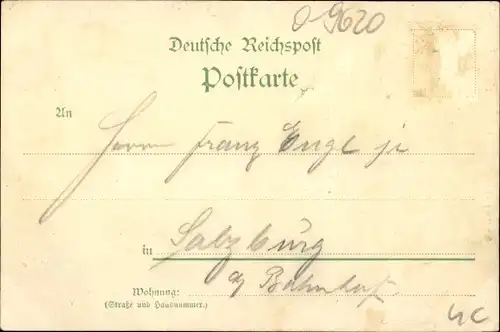 D 9620
Deutsche Reichspost
Postkarte
An
Herrn Franz Engl jr
in Salzburg
a/ Bahnhof.
Wohnung:
(Straße und Hausnummer.)